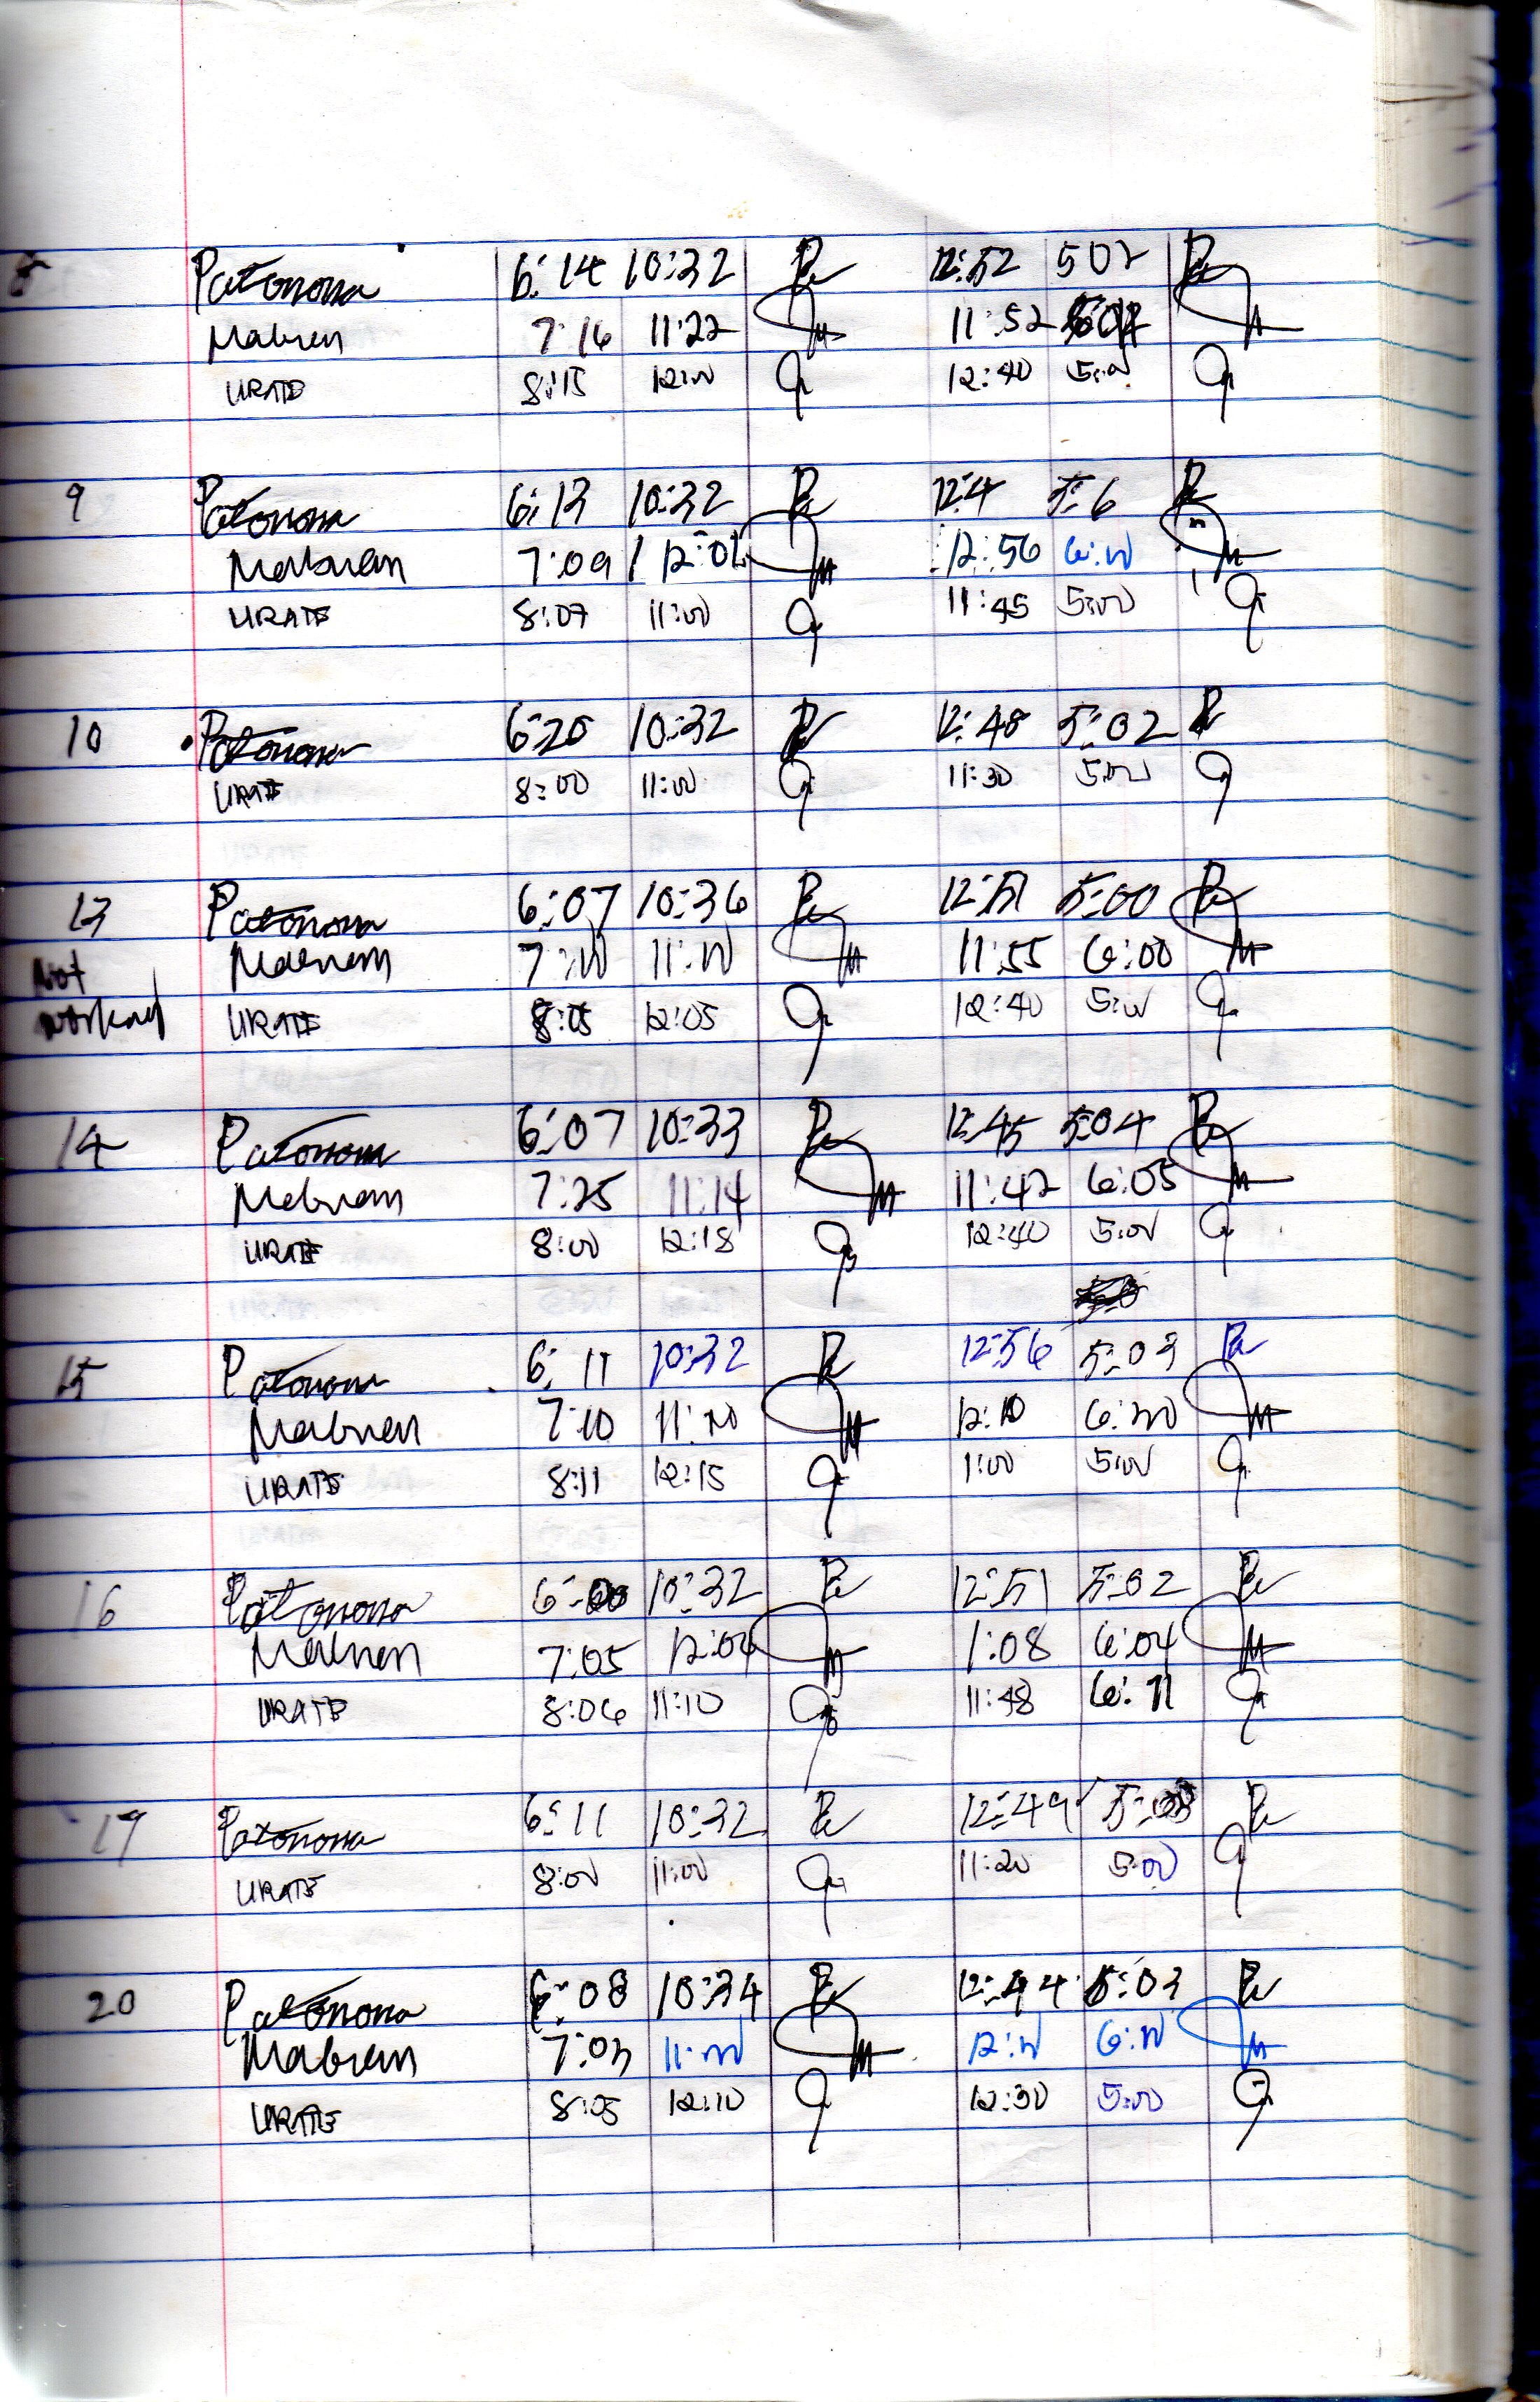 8 Patonona 6:14 10:32 Pa 12:52 502 Pa
Mabuen 7:16 11:22 M 11:52 M
URATE 8:15 12:00 12:40 5:00
9 Patonona 6:13 10:32 Pa 12:4 5:6 Pa
Mabuen 7:09 12:02 M 12:56 6:00 M
URATE 8:07 11:00 11:45 5:00
10 Patonona 6:20 10:32 Pa 12:48 5:02 Pa
URATE 8:00 11:00 11:30 5:00
13 Patonona 6:07 10:36 Pa 12:51 5:00 Pa
Not Mabuen 7:00 11:00 M 11:55 6:00 M
worked URATE 8:05 12:05 12:40 5:00
14 Patonona 6:07 10:33 Pa 12:45 5:04 Pa
Mabuen 7:25 11:14 M 11:42 6:05 M
URATE 8:00 12:18 12:40 5:00
15 Patonona 6:11 10:32 Pa 12:56 5:03 Pa
Mabuen 7:10 11:20 M 12:10 6:00 M
URATE 8:11 12:15 1:00 5:00
16 Patonona 6:00 10:32 Pa 12:51 5:02 Pa
Mabuen 7:05 12:04 M 1:08 6:04 M
URATE 8:06 11:10 11:48 6:11
17 Patonona 6:11 10:32 Pa 12:49 Pa
URATE 8:00 11:00 11:20 5:00
20 Patonona 6:08 10:34 Pa 12:44 5:03 Pa
Mabuen 7:03 11:00 M 12:00 6:00 M
URATE 8:05 12:10 12:30 5:00